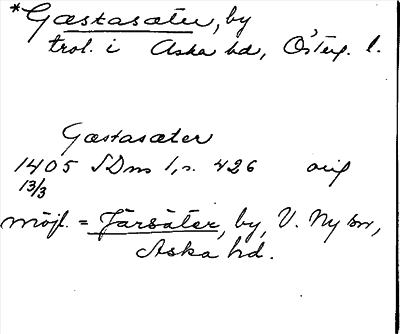 *Gæstasæter, by
trol. i Aska hd, Österg. l.
Gæstasæter
1405 SDns 1, s. 426 orig
13/3
möjl. = Järsäter, by, V. Ny sn,
Aska hd.